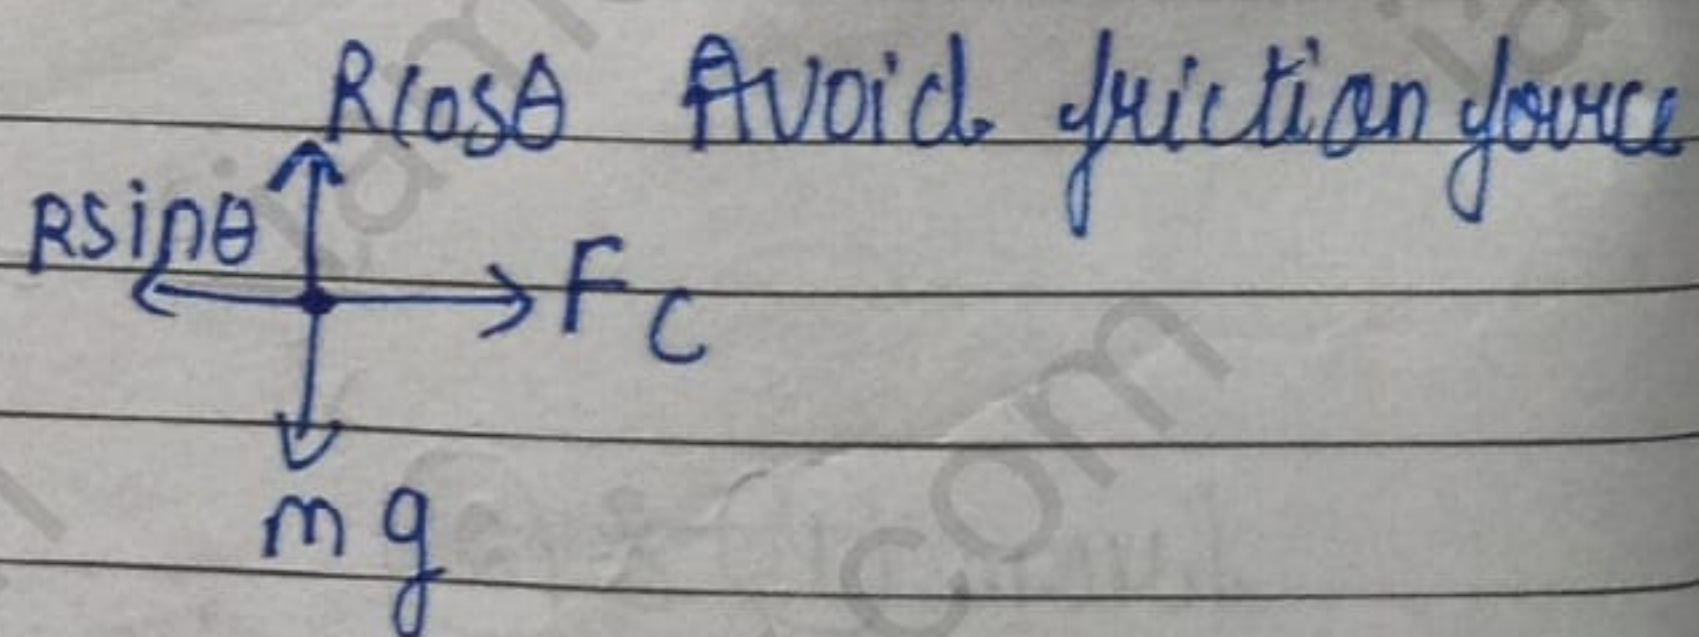 Rcosθ Avoid friction force
Rsinθ
Fc
mg
com